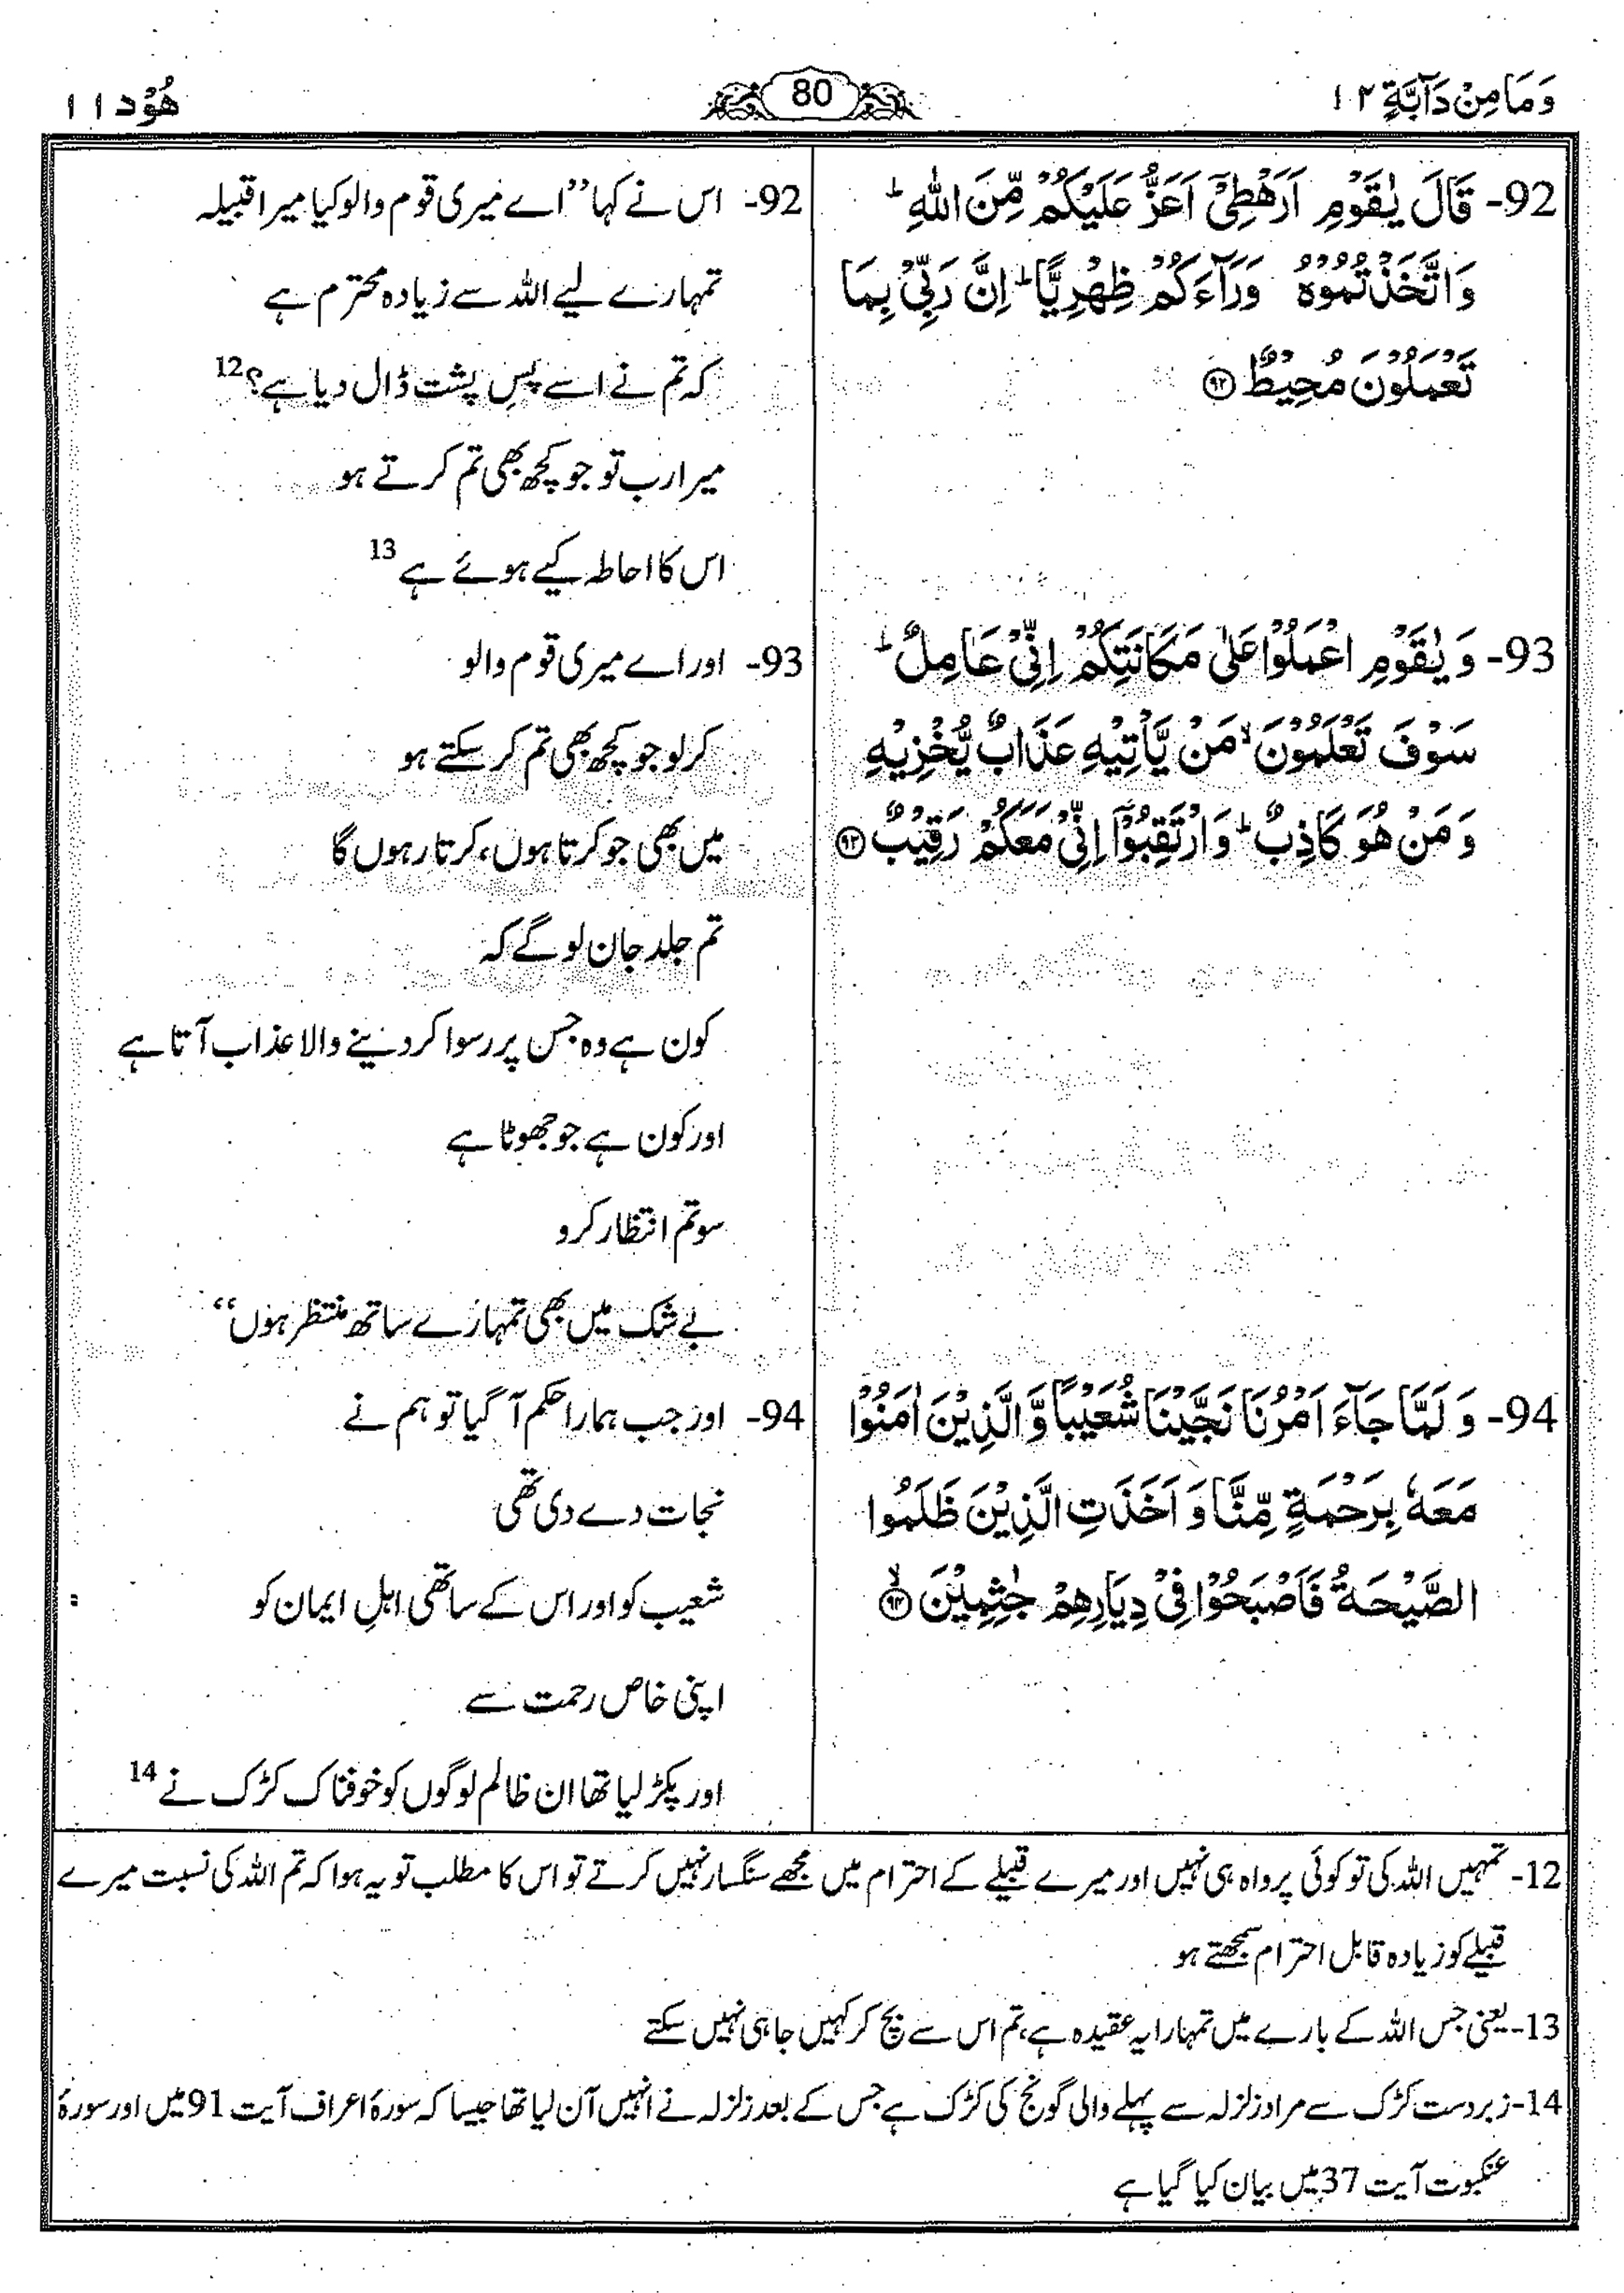 وَمَا مِنْ دَآبَّةٍ ۱۲
80
هُوْد ۱۱
92- قَالَ يٰقَوْمِ اَرَهْطِيْٓ اَعَزُّ عَلَيْكُمْ مِّنَ اللّٰهِ ؕ
وَاتَّخَذْتُمُوْهُ وَرَآءَكُمْ ظِهْرِيًّا ؕ اِنَّ رَبِّيْ بِمَا
تَعْمَلُوْنَ مُحِيْطٌ ﴿۹۲﴾
93- وَ يٰقَوْمِ اعْمَلُوْا عَلٰى مَكَانَتِكُمْ اِنِّيْ عَامِلٌ ؕ
سَوْفَ تَعْلَمُوْنَ ۙ مَنْ يَّاْتِيْهِ عَذَابٌ يُّخْزِيْهِ
وَ مَنْ هُوَ كَاذِبٌ ؕ وَ ارْتَقِبُوْٓا اِنِّيْ مَعَكُمْ رَقِيْبٌ ﴿۹۳﴾
94- وَ لَمَّا جَآءَ اَمْرُنَا نَجَّيْنَا شُعَيْبًا وَّ الَّذِيْنَ اٰمَنُوْا
مَعَهٗ بِرَحْمَةٍ مِّنَّا وَ اَخَذَتِ الَّذِيْنَ ظَلَمُوا
الصَّيْحَةُ فَاَصْبَحُوْا فِيْ دِيَارِهِمْ جٰثِمِيْنَ ﴿۹۴﴾ ۙ
92- اس نے کہا ’’اے میری قوم والو کیا میرا قبیلہ
تمہارے لیے اللہ سے زیادہ محترم ہے
کہ تم نے اسے پسِ پشت ڈال دیا ہے؟ 12
میرا رب تو جو کچھ بھی تم کرتے ہو
اس کا احاطہ کیے ہوئے ہے 13
93- اور اے میری قوم والو
کر لو جو کچھ بھی تم کر سکتے ہو
میں بھی جو کرتا ہوں، کرتا رہوں گا
تم جلد جان لو گے کہ
کون ہے وہ جس پر رسوا کر دینے والا عذاب آتا ہے
اور کون ہے جو جھوٹا ہے
سو تم انتظار کرو
بے شک میں بھی تمہارے ساتھ منتظر ہوں‘‘
94- اور جب ہمارا حکم آ گیا تو ہم نے
نجات دے دی تھی
شعیب کو اور اس کے ساتھی اہلِ ایمان کو
اپنی خاص رحمت سے
اور پکڑ لیا تھا ان ظالم لوگوں کو خوفناک کڑک نے 14
12- تمہیں اللہ کی تو کوئی پرواہ ہی نہیں اور میرے قبیلے کے احترام میں مجھے سنگسار نہیں کرتے تو اس کا مطلب تو یہ ہوا کہ تم اللہ کی نسبت میرے
قبیلے کو زیادہ قابل احترام سمجھتے ہو
13- یعنی جس اللہ کے بارے میں تمہارا یہ عقیدہ ہے، تم اس سے بچ کر کہیں جا ہی نہیں سکتے
14- زبردست کڑک سے مراد زلزلہ سے پہلے والی گونج کی کڑک ہے جس کے بعد زلزلہ نے انہیں آن لیا تھا جیسا کہ سورۂ اعراف آیت 91 میں اور سورۂ
عنکبوت آیت 37 میں بیان کیا گیا ہے